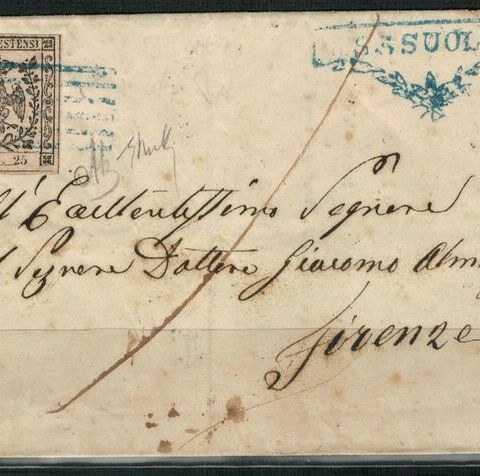 ESTENSI
SASSUOL
25
ll' Eccellentissimo Signore
l Signore Dottore Giacomo Alm
Firenze